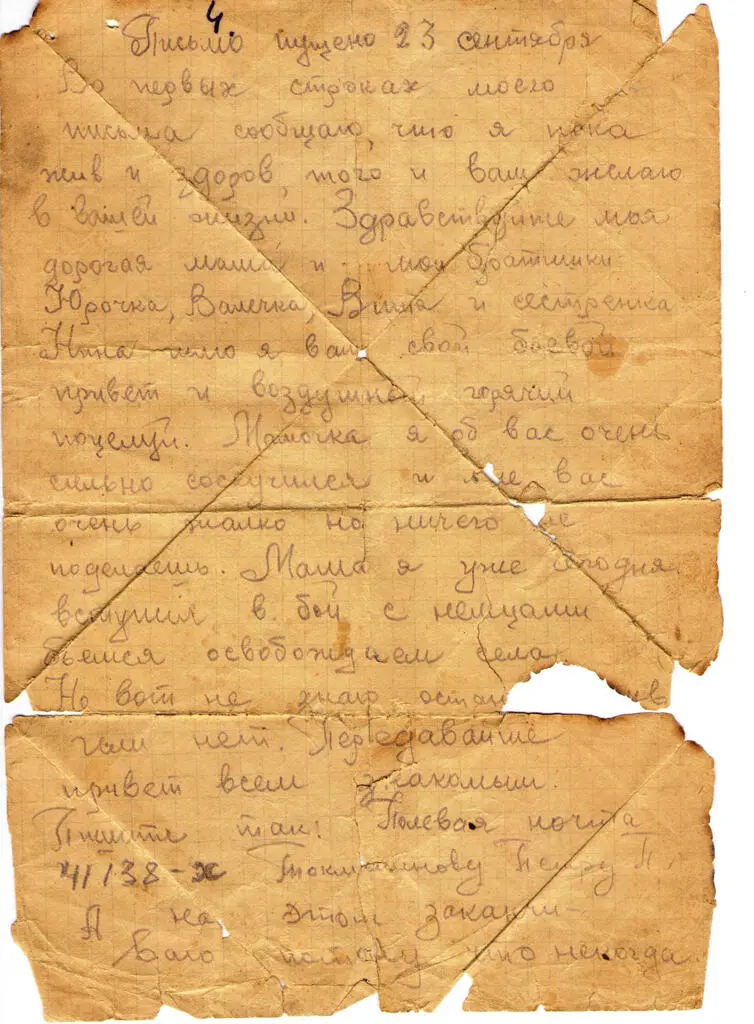 4.
Письмо пущено 23 сентября
Во первых строках моего
письма сообщаю, что я пока
жив и здоров, того и вам желаю
в вашей жизни. Здравствуйте моя
дорогая мама и мои братишки
Юрочка, Валечка, Витя и сестренка
Нина шлю я вам свой боевой
привет и воздушной горячий
поцелуй. Мамочка я об вас очень
сильно соскучился и мне вас
очень жалко но ничего не
поделаешь. Мама я уже сегодня
вступил в бой с немцами
бьемся освобождаем села
Но вот не знаю
или нет. Передавайте
привет всем знакомым.
Пишите так: Полевая почта
41138-х Петру П.
А на этом заканчи-
ваю потому что некогда